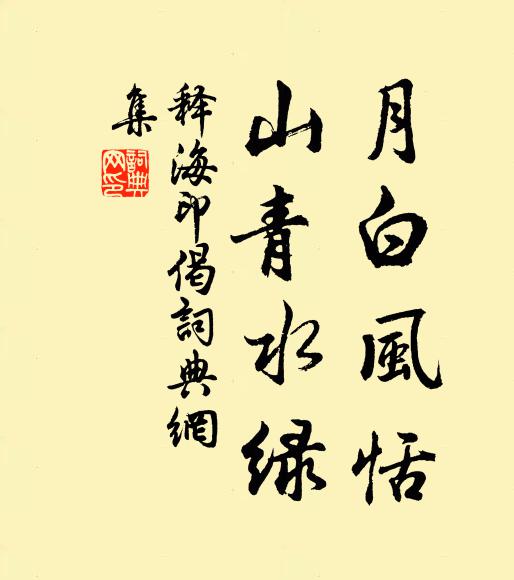 月白風恬
山青水绿
释海印偈詞典網
集
詞典
网印